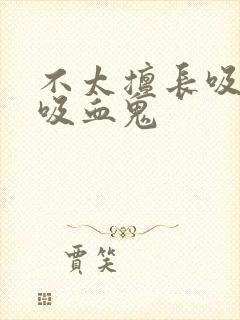 不太擅長吸
吸血鬼
賈笑